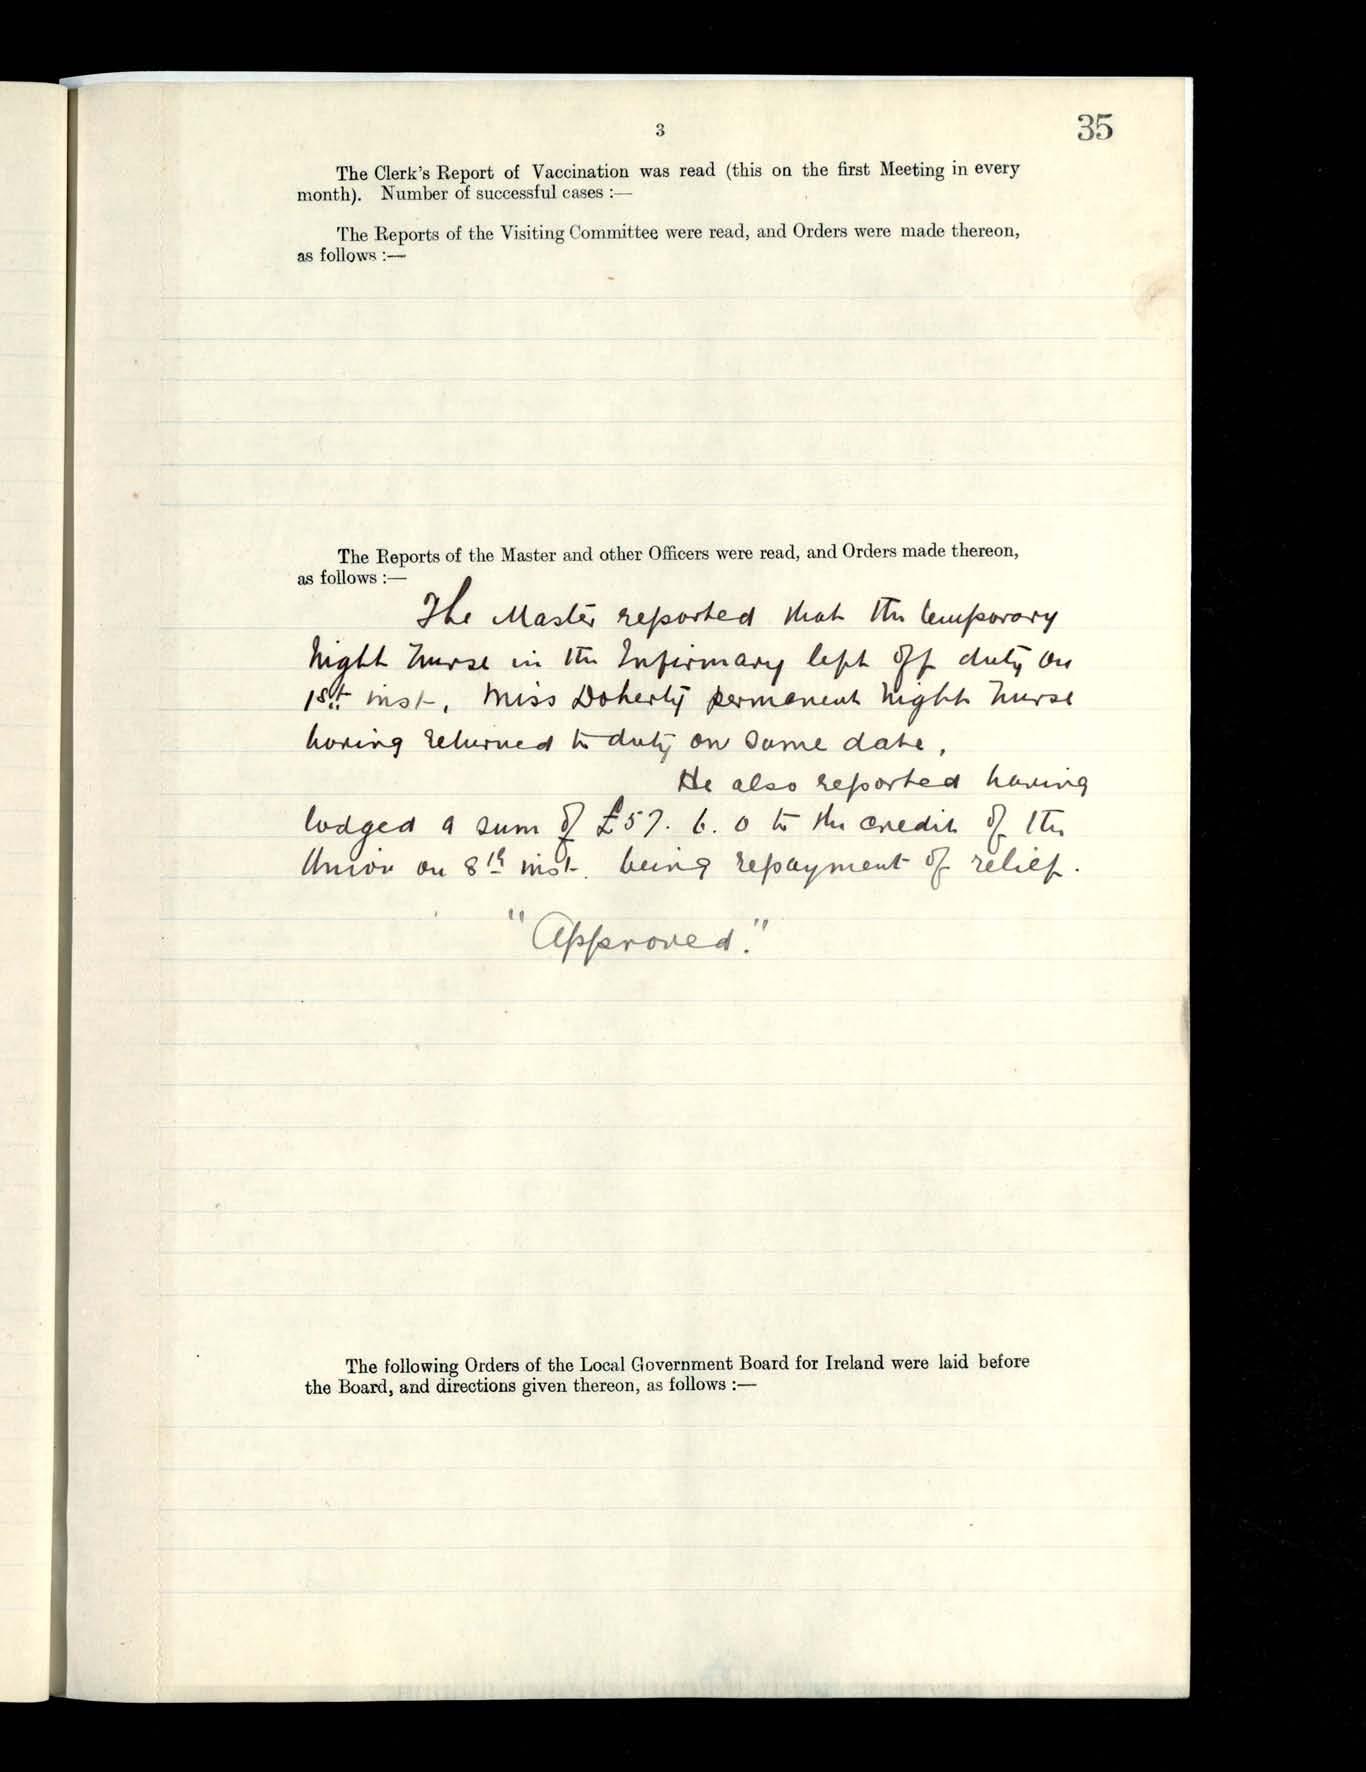 3
35
The Clerk's Report of Vaccination was read (this on the first Meeting in every
month). Number of successful cases :—
The Reports of the Visiting Committee were read, and Orders were made thereon,
as follows :—
The Reports of the Master and other Officers were read, and Orders made thereon,
as follows :—
The Master reported that the temporary
Night Nurse in the Infirmary left off duty on
1st inst, Miss Doherty permanent Night Nurse
having returned to duty on same date.
He also reported having
lodged a sum of £57. 6. 0 to the credit of the
Union on 8th inst. being repayment of relief.
"Approved."
The following Orders of the Local Government Board for Ireland were laid before
the Board, and directions given thereon, as follows :—